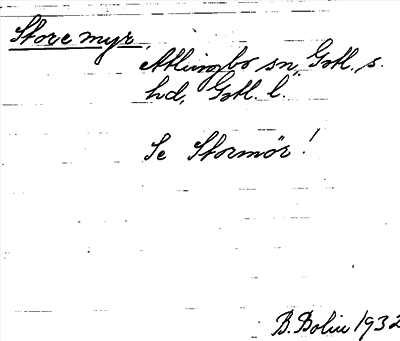 Store myr,
Atlingbo sn, Gotl. s.
hd, Gotl. l.
Se Stormör!
B. Bolin 1932